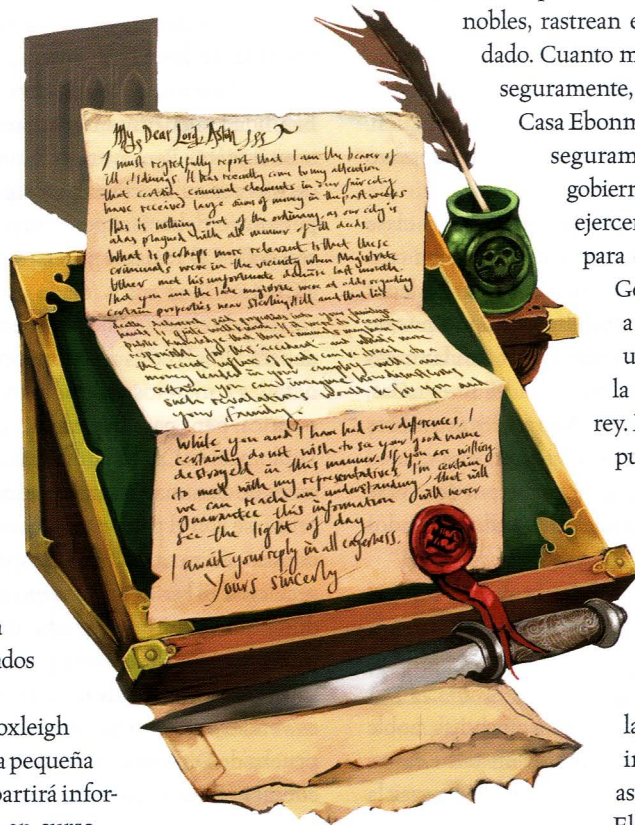 nobles, rastrean e
dado. Cuanto m
seguramente,
Casa Ebonm
seguram
gobiern
ejercer
para
Ge
a
u
la
rey.
pu
My Dear Lord Aston
I must regretfully report that I am the bearer of
ill tidings. It has recently come to my attention
that certain criminal elements in our fair city
have received large sums of money in the past weeks
This is nothing out of the ordinary, as our city is
alas plagued with all manner of ill deeds
What is perhaps more relevant is that these
criminals were in the vicinity when Magistrate
Uther met his unfortunate demise last month.
that you and the late magistrate were at odds regarding
certain properties near Sterling Hill and that his
death delivered said properties into your family's
hands is quite well known. If it were to become
public knowledge that these may have been
responsible for this "accident" and what's more
the recent influx of funds can be traced to a
money lender in your employ, well I am
certain you can imagine how disastrous
such revelations would be for you and
your family.
While you and I have had our differences, I
certainly do not wish to see your good name
destroyed in this manner. If you are willing
to meet with my representatives I'm certain
we can reach an understanding that will
guarantee this information will never
see the light of day
I await your reply in all eagerness.
Yours sincerly
a
dos
oxleigh
a pequeña
artirá infor-
en curso
la
in
as
El